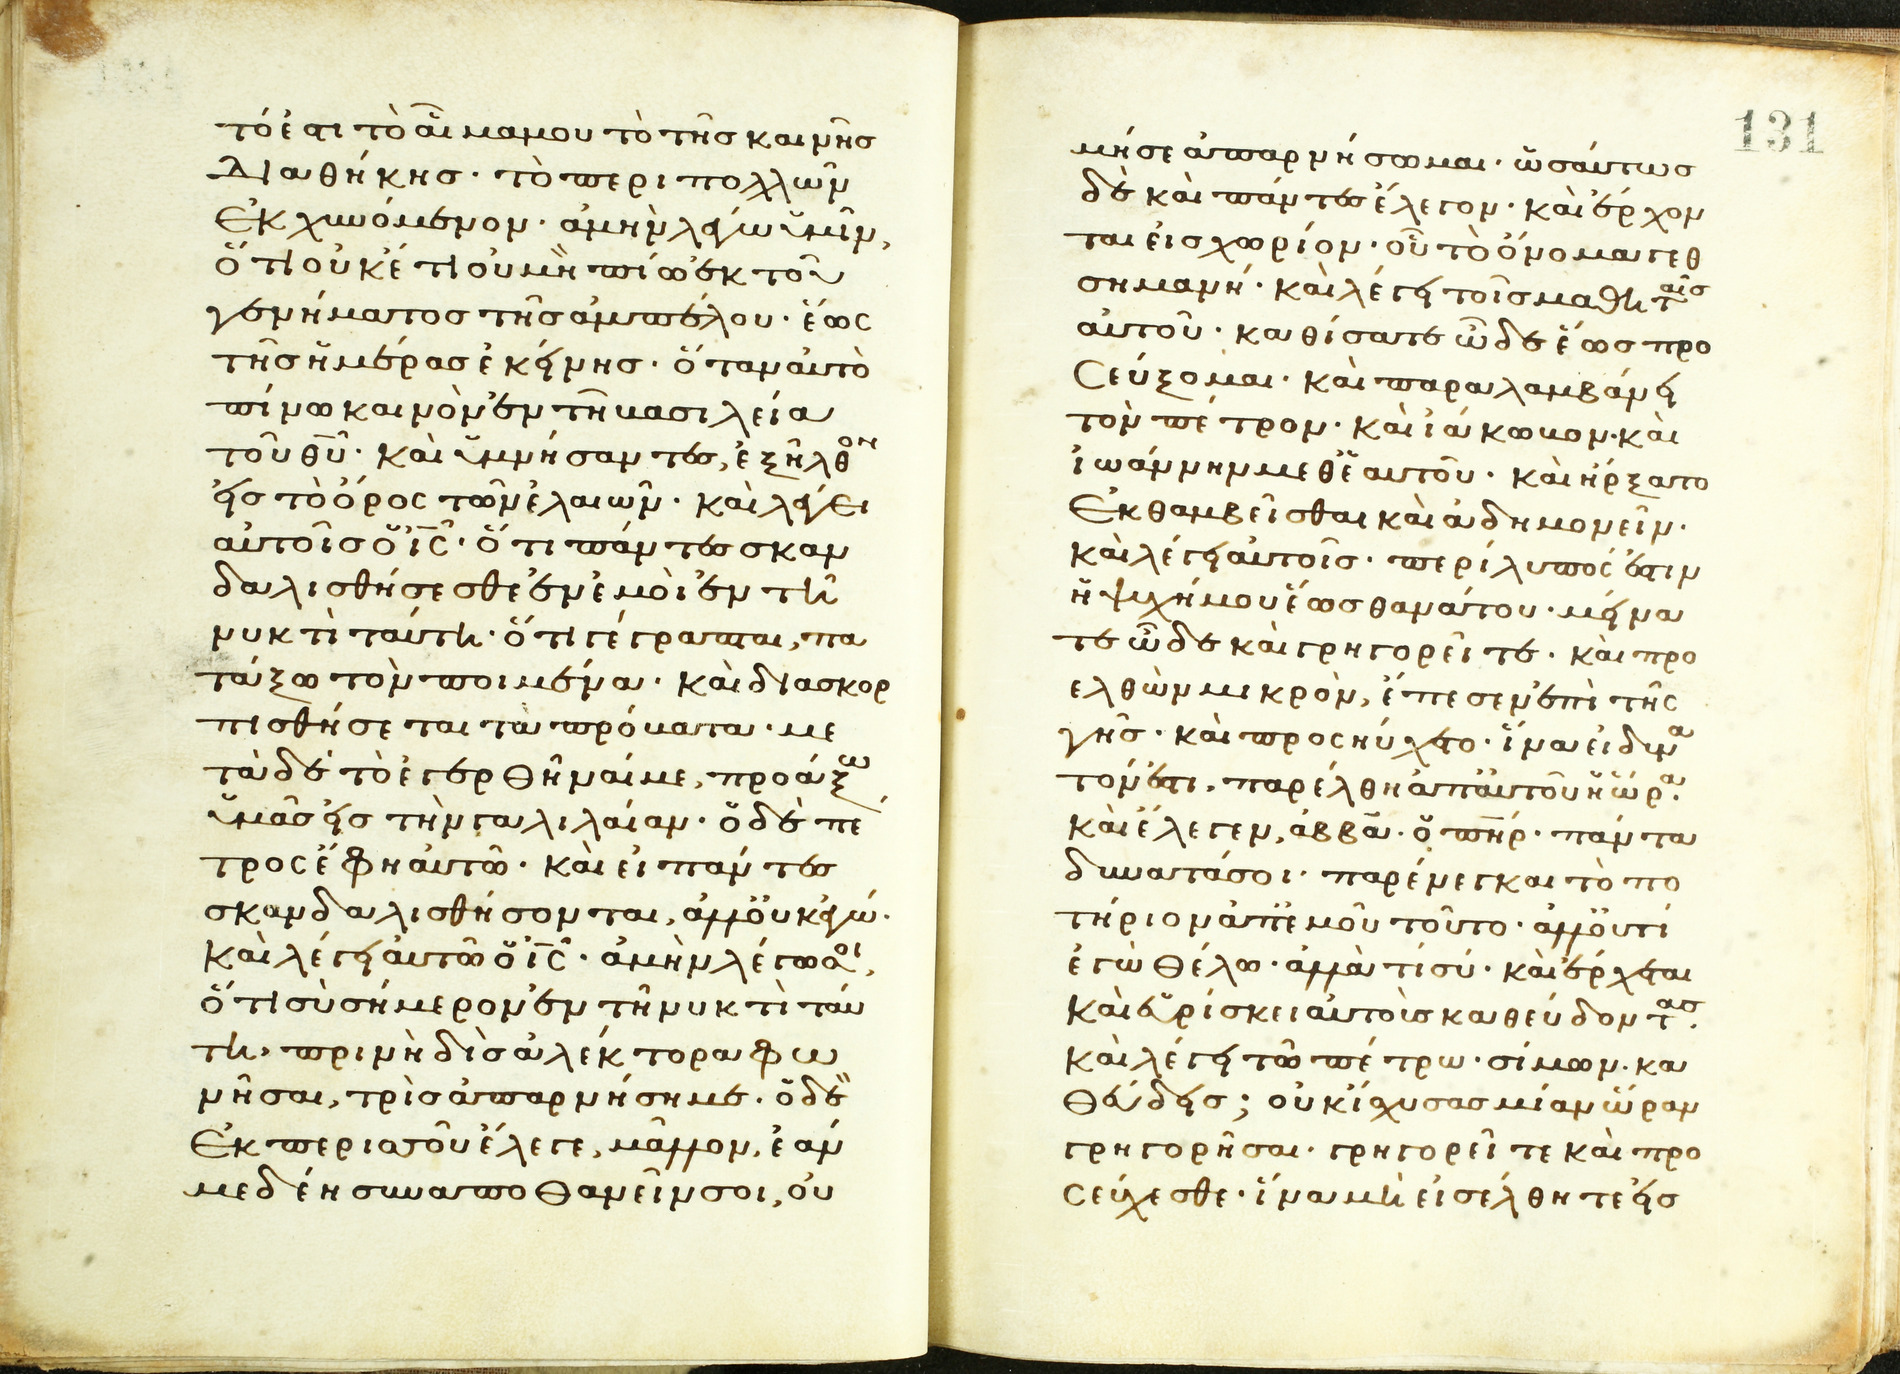 τό ἐστι τὸ αἷμα μου τὸ τῆς καινῆς
Διαθήκης· τὸ περι πολλῶν
Ἐκχυνόμενον· ἀμὴν λέγω ὑμῖν,
ὅτι οὐκέτι οὐ μὴ πίω ἐκ τοῦ
γενήματος τῆς ἀμπέλου· ἕως
τῆς ἡμέρας ἐκείνης· ὅταν αὐτὸ
πίνω καινὸν ἐν τῆ βασιλεία
τοῦ θυ̅· καὶ ὑμνήσαντες, ἐξῆλθον
εἰς τὸ ὄρος τῶν ἐλαιῶν· καὶ λέγει
αὐτοῖς ὁ ις̅· ὅτι πάντες σκαν
δαλισθήσεσθε ἐν ἐμοὶ ἐν τῆ
νυκτὶ ταύτη· ὅτι γέγραπται, πα
τάξω τὸν ποιμένα· καὶ διασκορ
πισθήσεται τὰ πρόβατα· με
τὰ δὲ τὸ ἐγερθῆναί με, προάξω
ὑμᾶς εἰς τὴν γαλιλαίαν· ὁ δὲ πέ
τρος ἔφη αὐτῶ· καὶ εἰ πάντες
σκανδαλισθήσονται, ἀλλ' οὐκ ἐγώ·
καὶ λέγει αὐτῶ ὁ ις̅· ἀμὴν λέγω σοι,
ὅτι σὺ σήμερον ἐν τῆ νυκτὶ ταύ
τη, πρινὴ δὶς ἀλέκτορα φω
νῆσαι, τρὶς ἀπαρνήση με· ὁ δὲ
Ἐκ περισσοῦ ἔλεγε, μᾶλλον, ἐάν
με δέη συναποθανεῖν σοι, οὐ
131
μή σε ἀπαρνήσωμαι· ὡσάυτως
δὲ καὶ πάντες ἔλεγον· καὶ ἔρχον
ται εἰς χωρίον· οὗ τὸ ὄνομα γεθ
σημανή· καὶ λέγει τοῖς μαθηταῖς
αὐτοῦ· καθίσατε ὧδε ἕως προ
σεύξομαι· καὶ παραλαμβάνει
τὸν πέτρον· καὶ ἰάκωβον· καὶ
ἰωάννην μεθ' ἑαυτοῦ· καὶ ἤρξατο
Ἐκθαμβεῖσθαι καὶ ἀδημονεῖν·
καὶ λέγει αὐτοῖς· περίλυπός ἐστιν
ἡ ψυχή μου ἕως θανάτου· μείνα
τε ὧδε καὶ γρηγορεῖτε· καὶ προ
ελθὼν μικρὸν, ἔπεσεν ἐπὶ τῆς
γῆς· καὶ προσηύχετο· ἵνα εἰ δυνα
τόν ἐστι, παρέλθη ἀπ' αὐτοῦ ἡ ὥρα·
καὶ ἔλεγεν, ἀββᾶ· ὁ πη̅ρ· πάντα
δυνατά σοι· παρένεγκαι τὸ πο
τήριον ἀπ' ἐμοῦ τοῦτο· ἀλλ' οὐ τί
ἐγὼ θέλω· ἀλλὰ τί σύ· καὶ ἔρχεται
καὶ εὑρίσκει αὐτοὺς καθεύδοντας·
καὶ λέγει τῶ πέτρω· σίμων· κα
θεύδεις; οὐκ ἴσχυσας μίαν ὥραν
γρηγορῆσαι· γρηγορεῖτε καὶ προ
σεύχεσθε· ἵνα μὴ εἰσέλθητε εἰς